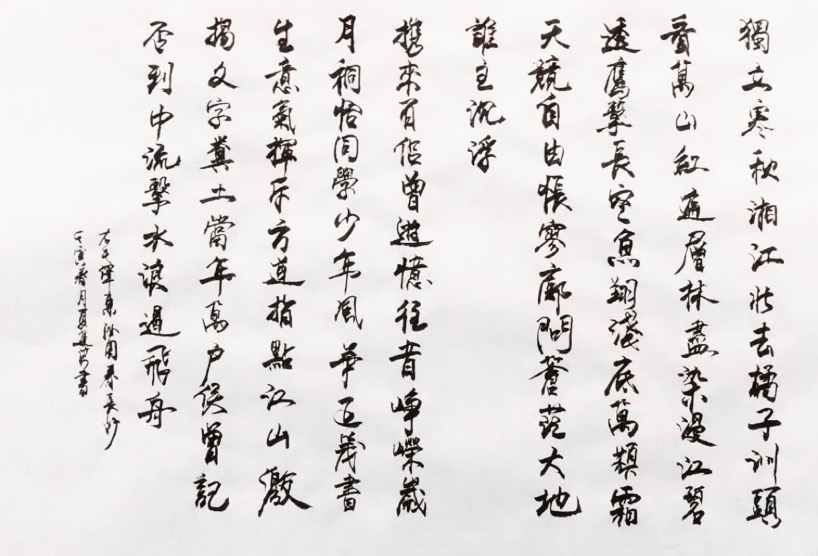 獨立寒秋湘江北去橘子洲頭
看萬山紅遍層林盡染漫江碧
透鷹擊長空魚翔淺底萬類霜
天競自由悵寥廓問蒼茫大地
誰主沉浮
攜來百侶曾遊憶往昔崢嶸歲
月稠恰同學少年風華正茂書
生意氣揮斥方遒指點江山激
揚文字糞土當年萬戶侯曾記
否到中流擊水浪遏飛舟
右毛澤東沁園春長沙
壬寅春月夏書